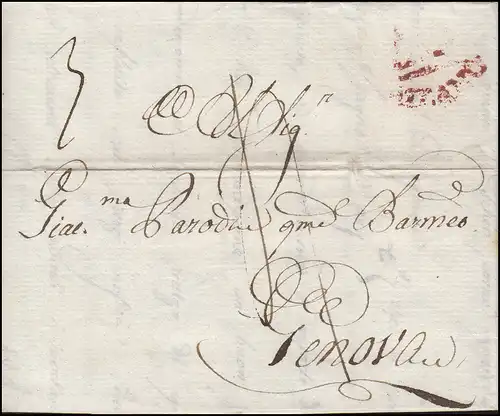 Al Sig.r
Giac.mo Parodi qm Barmeo
Genova